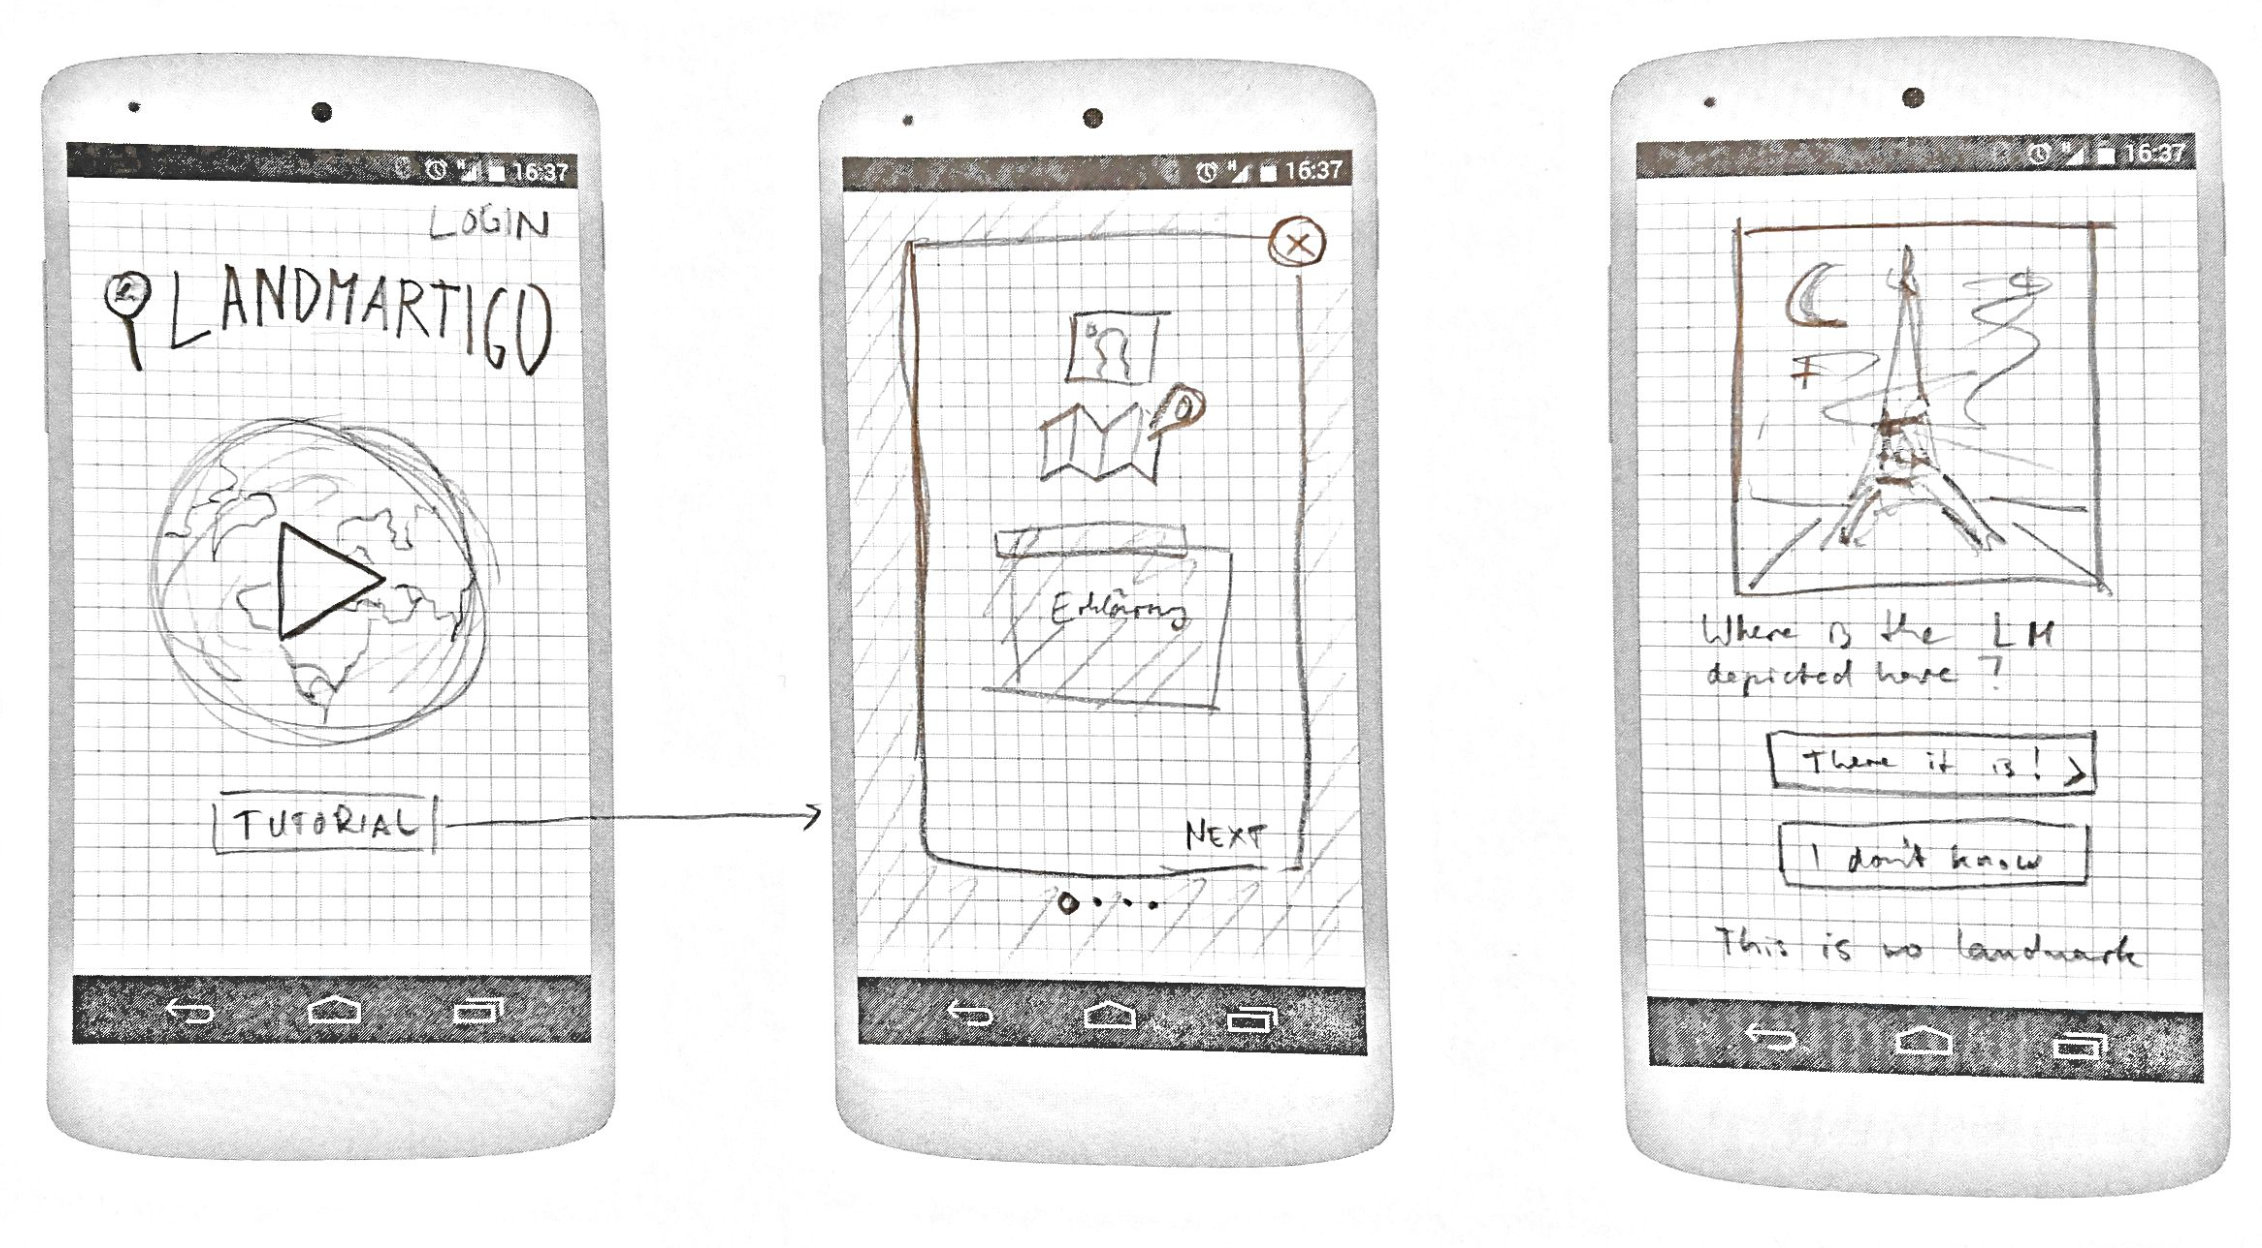 16:37
LOGIN
LANDMARTIGO
TUTORIAL
16:37
Erklärung
NEXT
16:37
Where is the LM
depicted here?
There it is! >
I don't know
This is no landmark